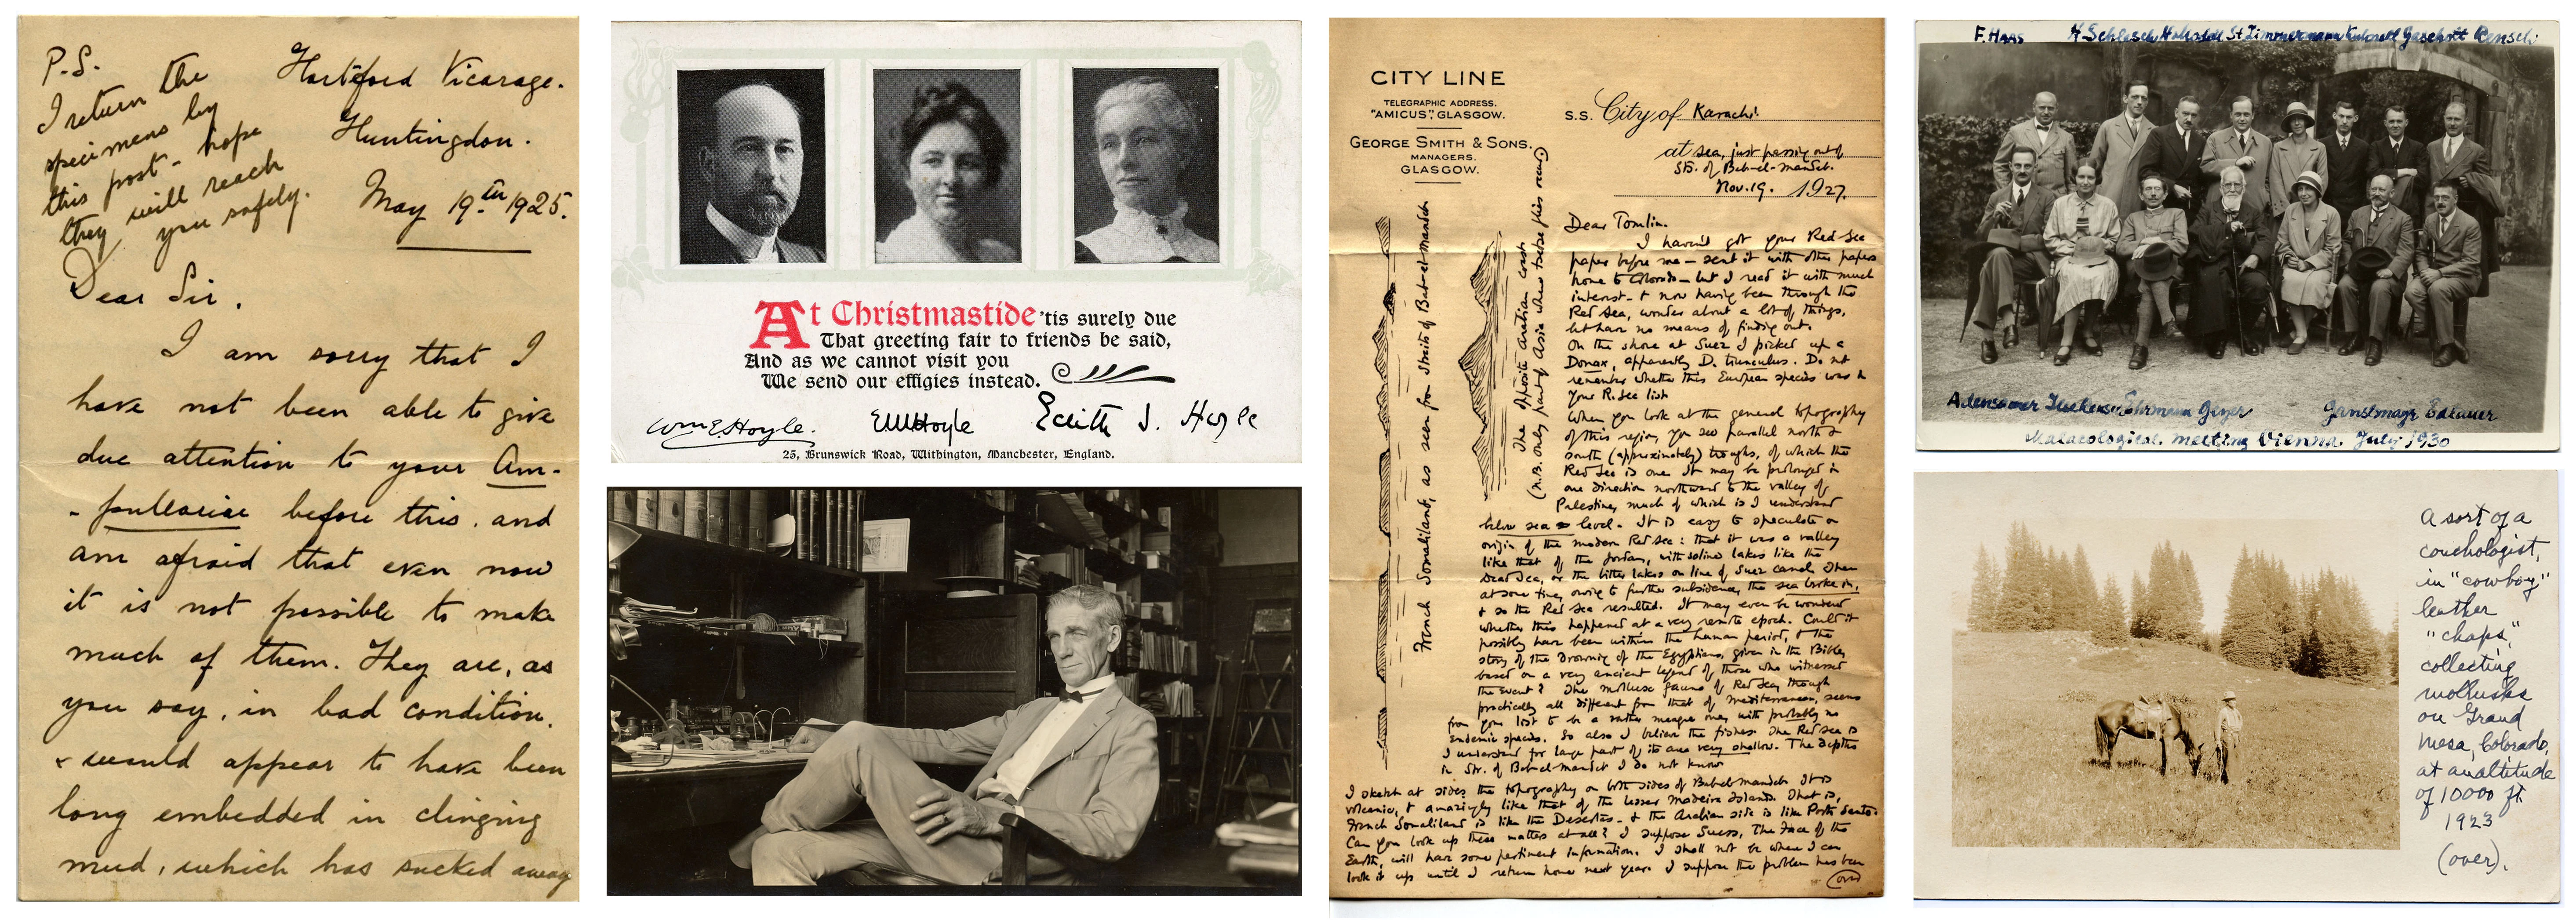 P.S.
I return the
specimens by
this post - hope
they will reach
you safely.
Hartford Vicarage.
Huntingdon.
May 19th 1925.
Dear Sir.
I am sorry that I
have not been able to give
due attention to your Am-
-pullariae before this, and
am afraid that even now
it is not possible to make
much of them. They are, as
you say, in bad condition.
& would appear to have been
long embedded in clinging
mud, which has sucked away
At Christmastide 'tis surely due
That greeting fair to friends be said,
And as we cannot visit you
We send our effigies instead.
Wm E. Hoyle.
EMHoyle
Edith J. Hoyle
25, Brunswick Road, Withington, Manchester, England.
CITY LINE
TELEGRAPHIC ADDRESS.
"AMICUS", GLASGOW.
GEORGE SMITH & SONS.
MANAGERS.
GLASGOW.
S.S. City of Karachi
at sea, just passing out of
Str. of Bab-el-mandeb.
Nov. 19. 1927.
French Somaliland, as seen from Straits of Bab-el-mandeb
The opposite Arabian coast
(N.B. only part of Asia where tsetse flies occur)
Dear Tomlin.
I haven't got your Red Sea
paper before me - sent it with other papers
home to Colorado - but I read it with much
interest - & now having been through the
Red Sea, wonder about a lot of things,
but have no means of finding out.
On the shore at Suez I picked up a
Donax, apparently D. trunculus. Do not
remember whether this European species was in
your R. Sea list
When you look at the general topography
of this region, you see parallel north &
south (approximately) troughs, of which the
Red Sea is one. It may be prolonged in
one direction northward to the valley of
Palestine, much of which is I understand
below sea-level. It is easy to speculate on
origin of the modern Red Sea: that it was a valley
like that of the Jordan, with saline lakes like the
Dead Sea, or the bitter lakes on line of Suez canal. Then
at some time, owing to further subsidence, the sea broke in,
& so the Red Sea resulted. It may even be wondered
whether this happened at a very remote epoch. Could it
possibly have been within the human period, & the
story of the drowning of the Egyptians, given in the Bible,
based on a very ancient legend of those who witnessed
the event? The mollusc fauna of Red Sea, though
practically all different from that of Mediterranean, seems
from your list to be a rather meagre one, with probably no
endemic species. So also I believe the fishes. The Red Sea is
I understand for large part of its area very shallow. The depths
in Str. of Bab-el-mandeb I do not know
I sketch at sides the topography on both sides of Bab-el-mandeb. It is
volcanic, & amazingly like that of the lesser Madeira Islands. That is,
French Somaliland is like the Desertas - & the Arabian side is like Porto Santo.
Can you look up these matters at all? I suppose Suess, The Face of the
Earth, will have some pertinent information. I shall not be where I can
look it up until I return home next year. I suppose the problem has been
(over)
F. HAAS H. Schlesch St Zimmermann Gaschott Rensch
Adensamer Ehrmann Geyer
Malacological meeting Vienna July 1930
A sort of a
conchologist,
in "cowboy"
leather
"chaps,"
collecting
mollusks
on Grand
Mesa, Colorado,
at an altitude
of 10000 ft
1923
(over).